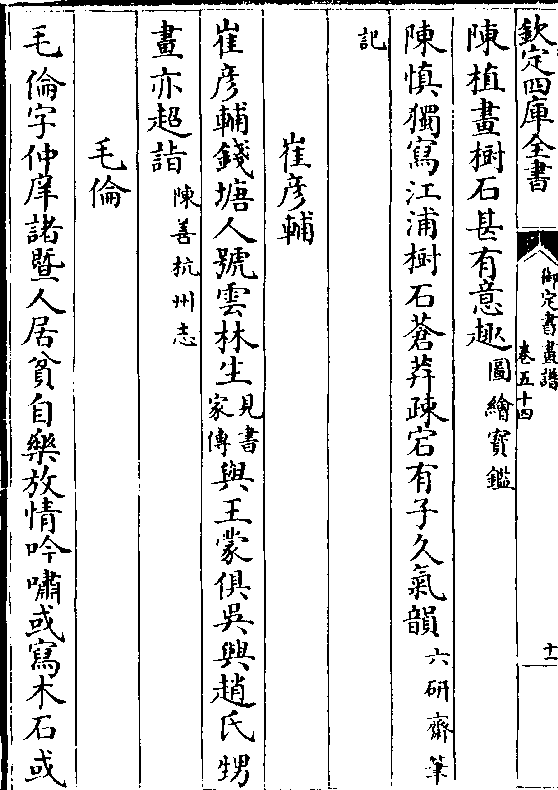 欽定四庫全書
御定書畫譜
卷五十四
十一
陳植畫樹石甚有意趣圖繪寳鑑
陳慎獨寫江浦樹石蒼莽疎宕有子久氣韻六研齋筆
記
崔彦輔
崔彦輔錢塘人號雲林生見書家傳與王蒙俱吳興趙氏甥
畫亦超詣陳善杭州志
毛倫
毛倫字仲庠諸暨人居貧自樂放情吟嘯或寫木石或